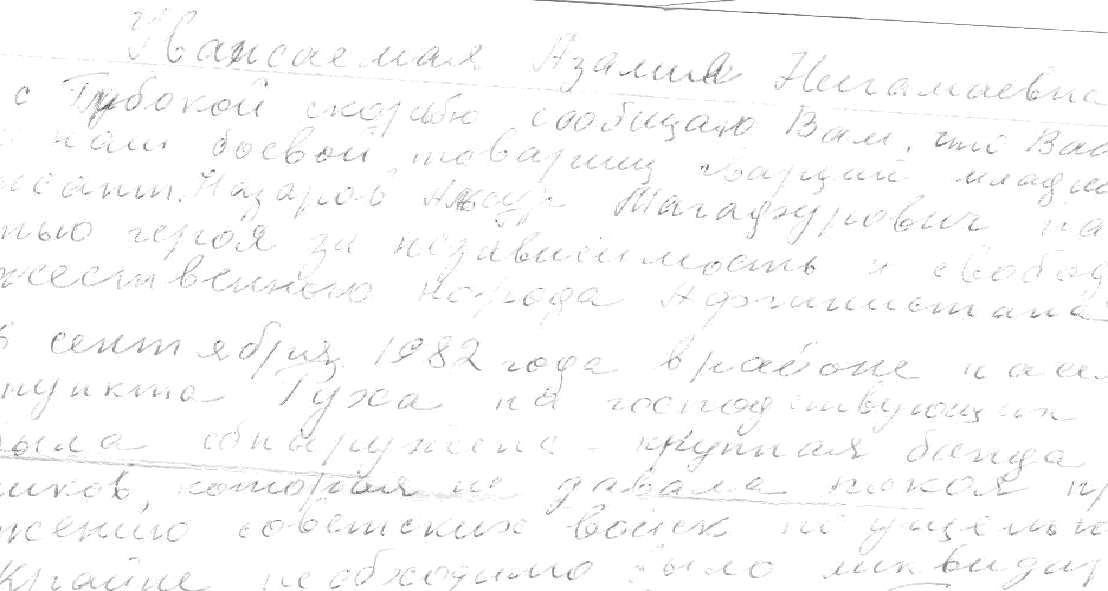 Уважаемая Азалия Нигамаевна
с Глубокой скорбью сообщаю Вам, что Ваш
наш боевой товарищ гвардии младш
жант Назаров Магафурович па
тью героя за независимость и свобод
жественного народа Афганистана
сентября 1982 года в районе насел
пункта Руха на господствующих
была обнаружена крупная банда
ников, которая не давала покоя пр
жению советских войск по ущелью
Крайне необходимо было ликвидир